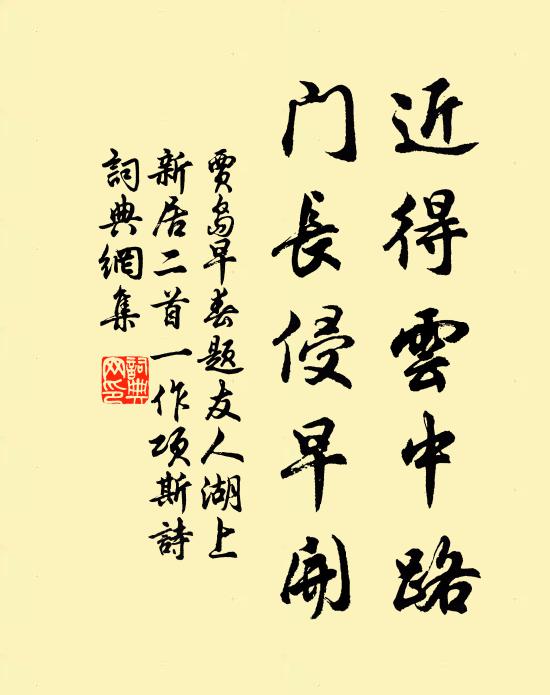 近得雲中路
門長侵早開
賈島早春題友人湖上
新居二首一作項斯詩
詞典網集
詞典網印